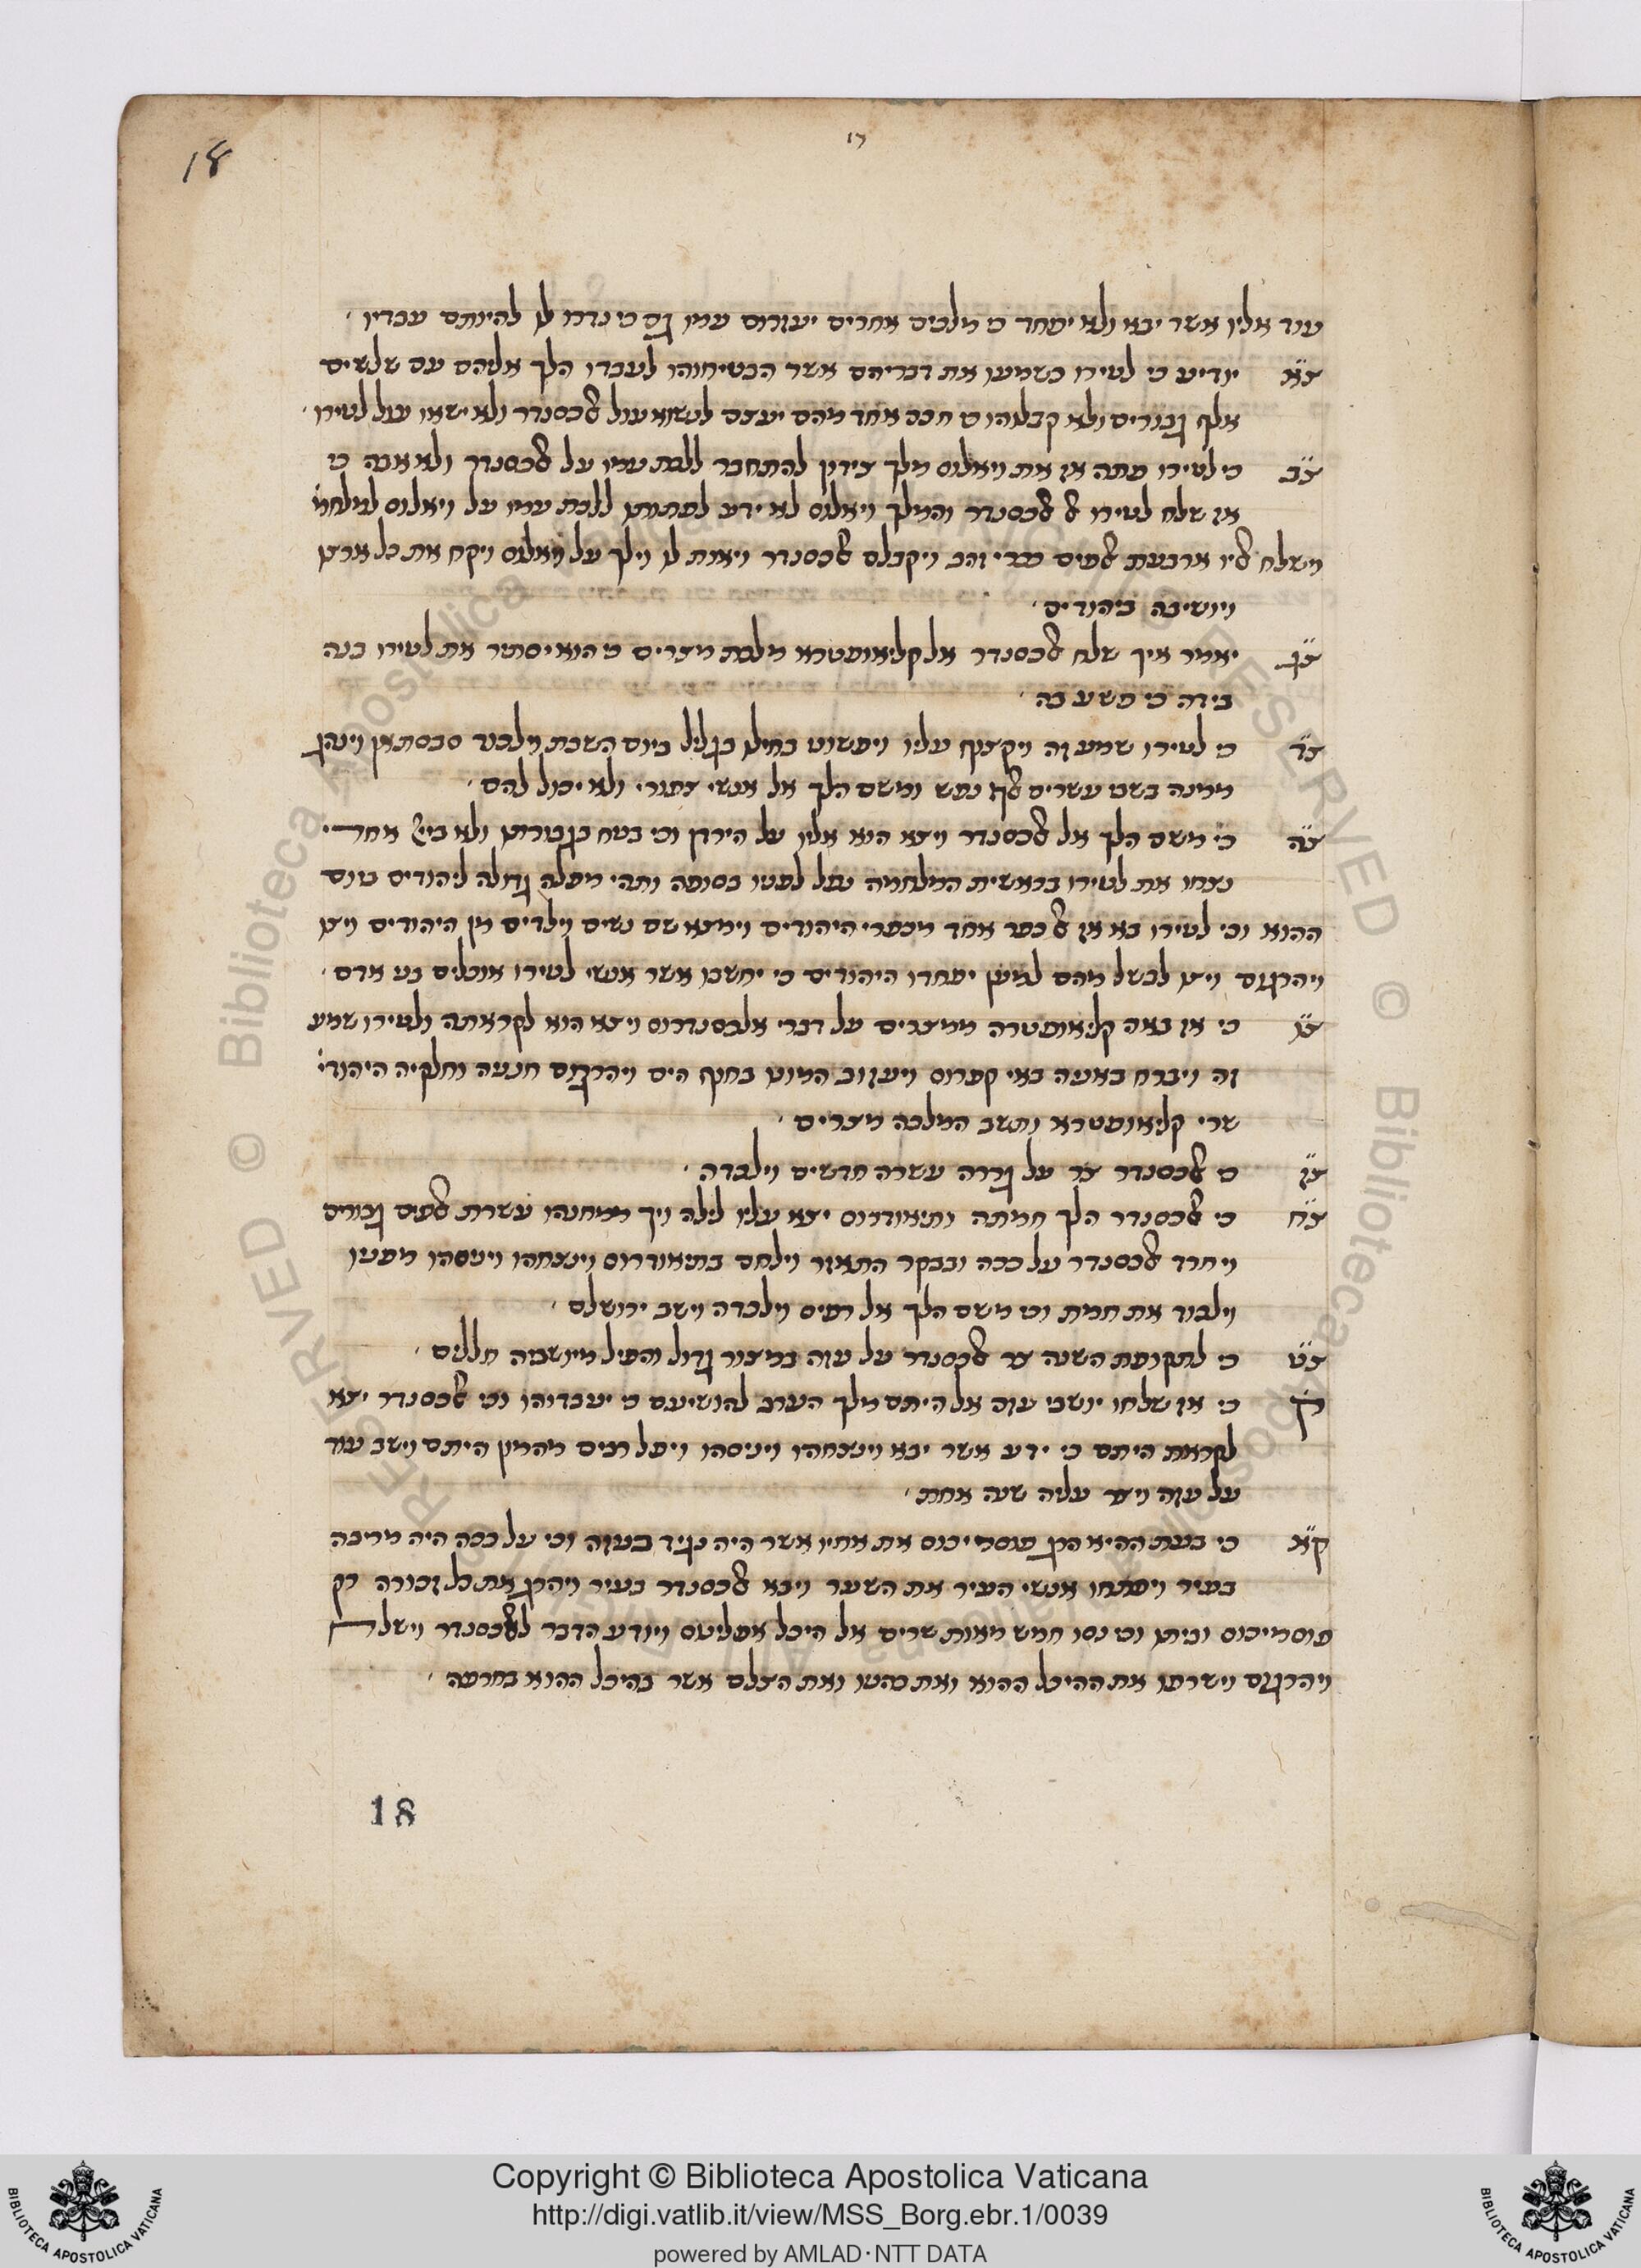 18
יז
עוד אליו אשר יבא ולא יפחד כי מלכים אחרים יעזרוהו עמו גם כי נדרו לו להיותם עבדיו
צא יודיע כי לטירו כשמעו את דבריהם אשר הבטיחוהו לעבדו הלך אליהם עם שלשים
אלף גבורים ולא קבלוהו כי חכם אחד מהם יעצם לנשוא עול אלכסנדר ולא ישאו עול לטירו
צב כי לטירו פתה אז את ויאלוס מלך צידון להתחבר ללכת עמו על אלכסנדר ולא אבה כי
אז שלח לטירו אל אלכסנדר והמלך ויאלוס לא ידע לפתותו ללכת עמו על ויאלוס למלחמ'
וישלח אליו ארבעת אלפים ככרי זהב ויקבלם אלכסנדר ויאות לו וילך על ויאלוס ויקח את כל ארצו
ויושיבה ביהודים
צג יאמר איך שלח אלכסנדר אל קליאופטרא מלכת מצרים כי הוא יסתיר את לטירו בנה
בידה כי פשע בה
צד כי לטירו שמע זה ויקצוף עליו ויפשוט בחילו בגליל ביום השבת וילכוד סבסתאן וינהג
ממנה בשבי עשרים אלף נפש ומשם הלך אל אנשי צפורי ולא יכול להם
צה כי משם הלך אל אלכסנדר ויצא הוא אליו על הירדן וכי בטח בגבורתו ולא ביי' אחרי
נצחו את לטירו בראשית המלחמה נפל לפניו בסופה ותהי מפלה גדולה ליהודים ביום
ההוא וכי לטירו בא אז אל כפר אחד מכפרי היהודים וימצא שם נשים וילדים מן היהודים ויצו
ויהרגום ויצו לבשל מהם למען יפחדו היהודים כי יחשבו אשר אנשי לטירו אוכלים בני אדם
צו כי אז באה קליאופטרה ממצרים על דברי אלכסנדרוס ויצא הוא לקראתה ולטירו שמע
זה ויברח באניה באי קפרוס ויעזוב המונו בחוף הים ויהרגום חנניה וחלקיה היהודי'
שרי קליאופטרא ותשב המלכה מצרים
צז כי אלכסנדר צר על גדרה עשרה חדשים וילכדה
צח כי אלכסנדר הלך חמתה ותיאודורוס יצא עליו לילה ויך ממחנהו עשרת אלפים גבורים
ויחרד אלכסנדר על ככה ובבקר התאזר וילחם בתיאודורוס וינצחהו וינוסהו מפניו
וילכוד את חמת וכי משם הלך אל רפיס וילכדה וישב ירושלם
צט כי לתקופת השנה צר אלכסנדר על עזה במצור גדול והפיל מיושביה חללים
ק כי אז שלחו יושבי עזה אל היתם מלך הערב להושיעם כי יעבדוהו וכי אלכסנדר יצא
לקראת היתם כי ידע אשר יבא וינצחהו וינוסהו ויפל רבים מהמון היתם וישב עוד
על עזה ויצר עליה שנה אחת
קא כי בעת ההיא הרג פוסמיכוס את אחיו אשר היה נגיד בעזה וכי על ככה היה מריבה
בעיר ויפתחו אנשי העיר את השער ויבא אלכסנדר בעיר ויהרג את כל זכורה רק
פוסמיכוס וביתו וכי נסו חמש מאות שרים אל היכל אפליטס ויודע הדבר לאלכסנדר וישלח
ויהרגום וישרפו את ההיכל ההוא ואת כהניו ואת הצלם אשר בהיכל ההוא בחרפה
18
Copyright © Biblioteca Apostolica Vaticana
http://digi.vatlib.it/view/MSS_Borg.ebr.1/0039
powered by AMLAD·NTT DATA